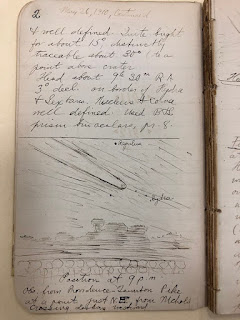 2
May 26, 1910, Continued
& well defined. Quite bright
for about 15°, distinctly
traceable about 30° to a
point above crater.
Head about 9h 30m R A
3° decl. on border of Hydra
& Sextans. Nucleus & coma
well defined. Used
prism binoculars, pr 8.
Regulus
Hydra
Position at 9 p.m.
Obs. from Providence-Taunton Pike
at a point just N.E. from Nichols
crossing looking westward